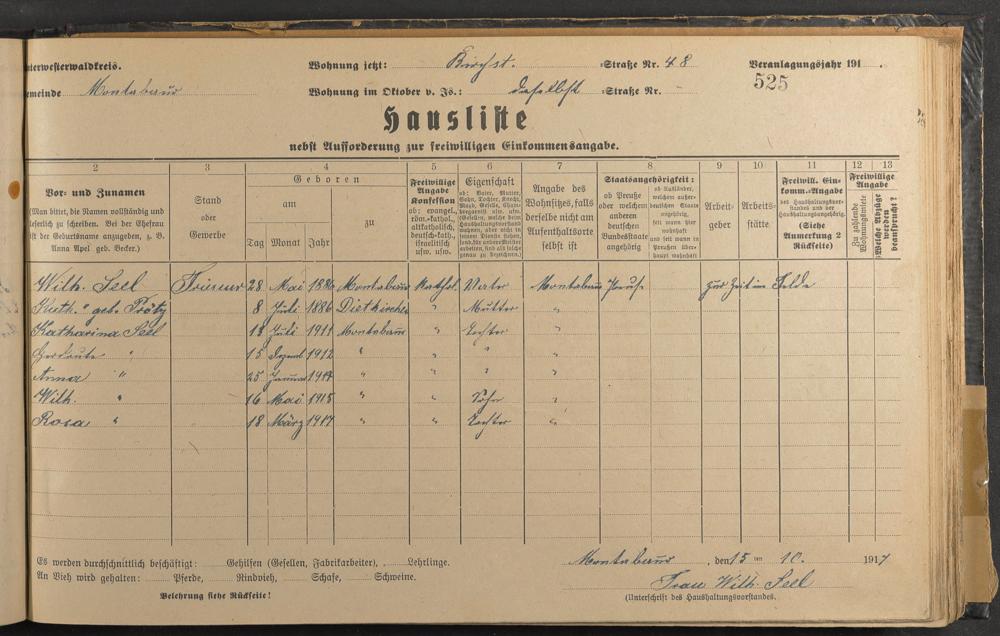 nterwesterwaldkreis. Wohnung jetzt: Kirchst. Straße Nr. 48 Veranlagungsjahr 191 .
emeinde Montabaur Wohnung im Oktober v. Js.: daselbst Straße Nr. 525
Hausliste
nebst Aufforderung zur freiwilligen Einkommensangabe.
2 3 4 5 6 7 8 9 10 11 12 13
Vor- und Zunamen
(Man bittet, die Namen vollständig und
leserlich zu schreiben. Bei der Ehefrau
ist der Geburtsname anzugeben, z. B.
Anna Apel geb. Becker.)
Stand
oder
Gewerbe
Geboren
am zu
Tag Monat Jahr
Freiwillige
Angabe
Konfession
ob: evangel.,
röm.-kathol.,
altkatholisch,
deutsch-kath.,
israelitisch
usw. usw.
Eigenschaft
ob: Vater, Mutter,
Sohn, Tochter, Knecht,
Magd, Geselle,
Angabe des
Wohnsitzes, falls
derselbe nicht am
Aufenthaltsorte
selbst ist
Staatsangehörigkeit:
ob Preuße
oder welchem
anderen
deutschen
Bundesstaate
angehörig
ob Ausländer,
welchem außer-
deutschen Staate
angehörig,
seit wann hier
wohnhaft
und seit wann in
Preußen über-
haupt wohnhaft
Arbeit-
geber
Arbeits-
stätte
Freiwill. Ein-
komm.-Angabe
des Haushaltungsvor-
standes und der
Haushaltungsangehörig.
(Siehe
Anmerkung 2
Rückseite)
Freiwillige
Angabe
Zu zahlende
Wohnungsmiete
Welche Abzüge
werden
beansprucht?
Wilh. Seel Friseur 28 Mai 1886 Montabaur Kathol. Vater Montabaur Preuß. zur Zeit im Felde
Kath. " geb. 8 Juli 1886 " Mutter "
Katharina Seel 13 Juli 1911 Montabaur " Tochter "
Gertrude " 15 Dezemb 1912 " " " "
Anna " 25 Januar " " " "
Wilh. " 16 Mai 1915 " " Sohn "
Rosa " 18 März 1917 " " Tochter "
Es werden durchschnittlich beschäftigt: Gehilfen (Gesellen, Fabrikarbeiter), Lehrlinge.
An Vieh wird gehalten: Pferde, Rindvieh, Schafe, Schweine.
Belehrung siehe Rückseite!
Montabaur, den 15 ten 10. 1917
Frau Wilh. Seel
(Unterschrift des Haushaltungsvorstandes.